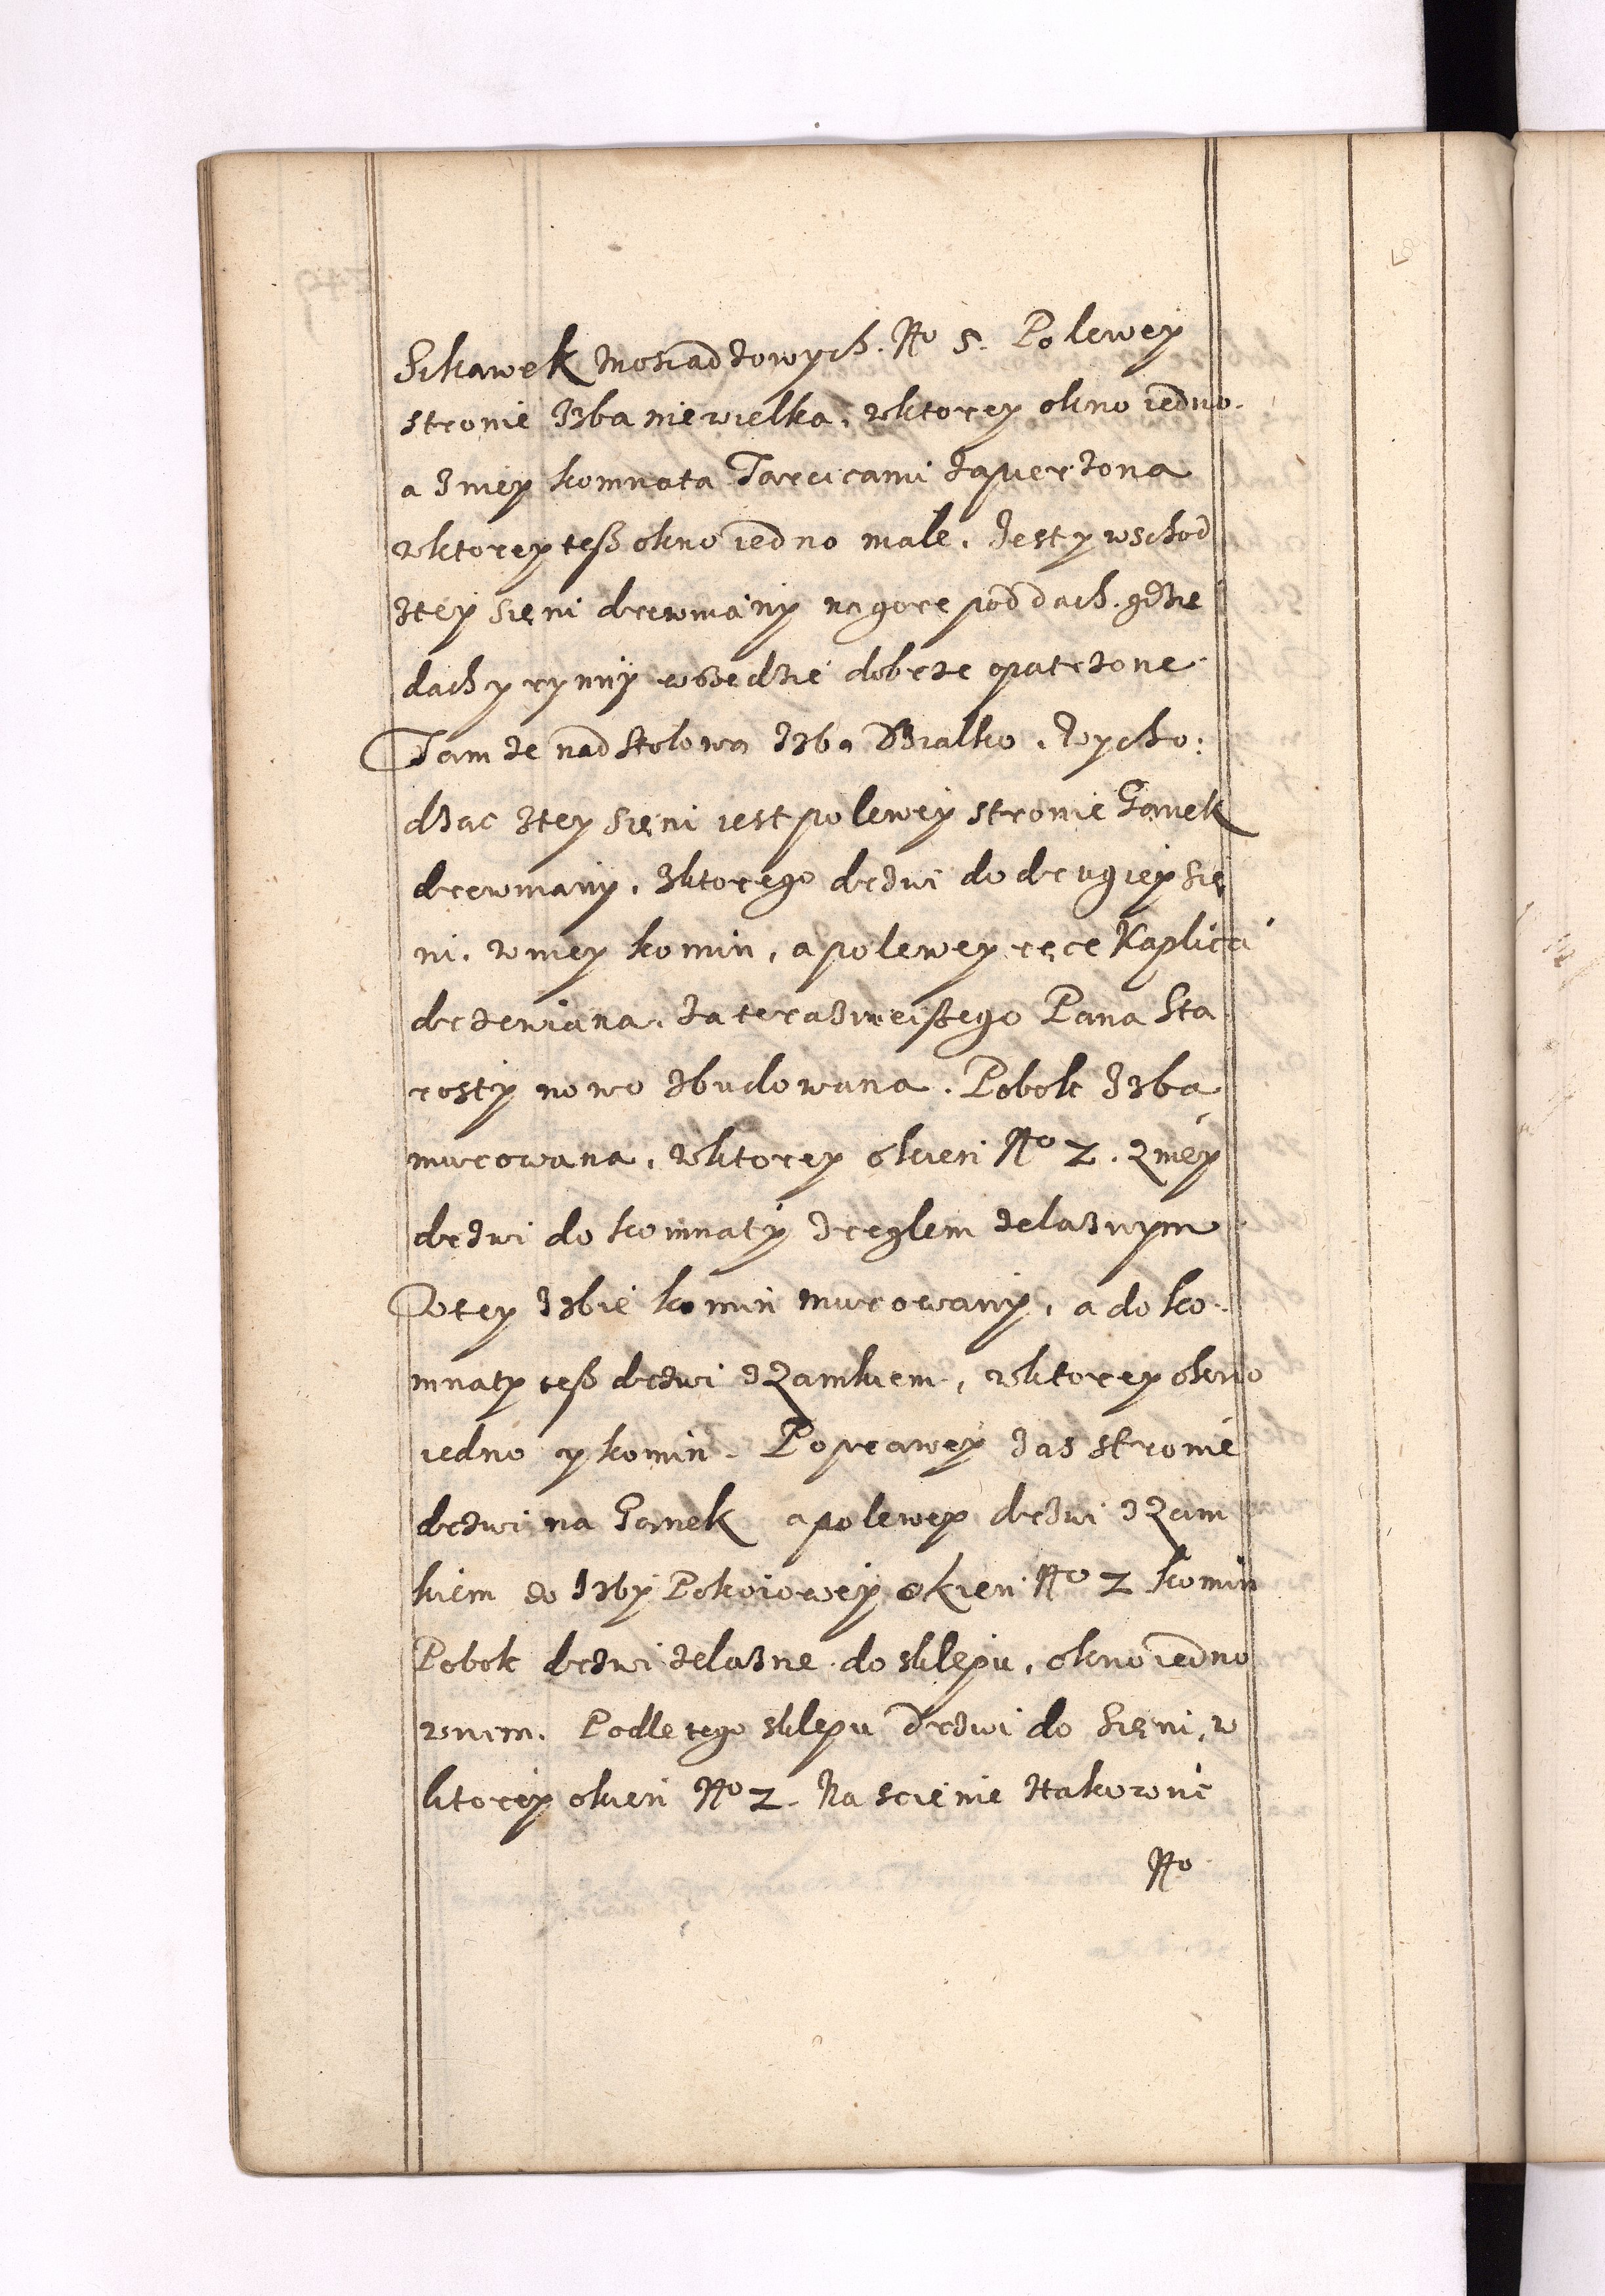 Sikawek mosiadzowych. No 5. Po lewey
stronie Izba niewielka, w ktorey okno iedno.
a z niey komnata Tarcicami zapierzona
w ktorey teß okno iedno małe. Jest y wschod
z tey sięni drewniany na gore pod dach. gdzie
dach y rynny wßedzie dobrze opatrzone.
Tamze nad stolowa Izba Działko. Wycho:
dzac z tey sięni iest po lewey stronie Ganek
drewniany, z ktorego drzwi do drugiey się
ni. w niey komin, a po lewey ręce Kaplica
drzewiana, za teraznieißego Pana Sta
rosty nowo zbudowana. Pobok Izba
murowana, w ktorey okien No 2. Z niey
drzwi do komnaty z reglem zelaznym
W tey Izbie komin murowany, a do ko-
mnaty teß drzwi z Zamkiem, w ktorey okno
iedno y komin. Po prawey zas stronie
drzwi na Ganek a po lewey drzwi z Zam
kiem do Izby Pokoiowey okien No 2 komin
Pobok drzwi zelazne do sklepu, okno iedno
w nim. Podle tego sklepu Drzwi do Sięni, w
ktorey okien No 2. Na scienie Hakownic
No